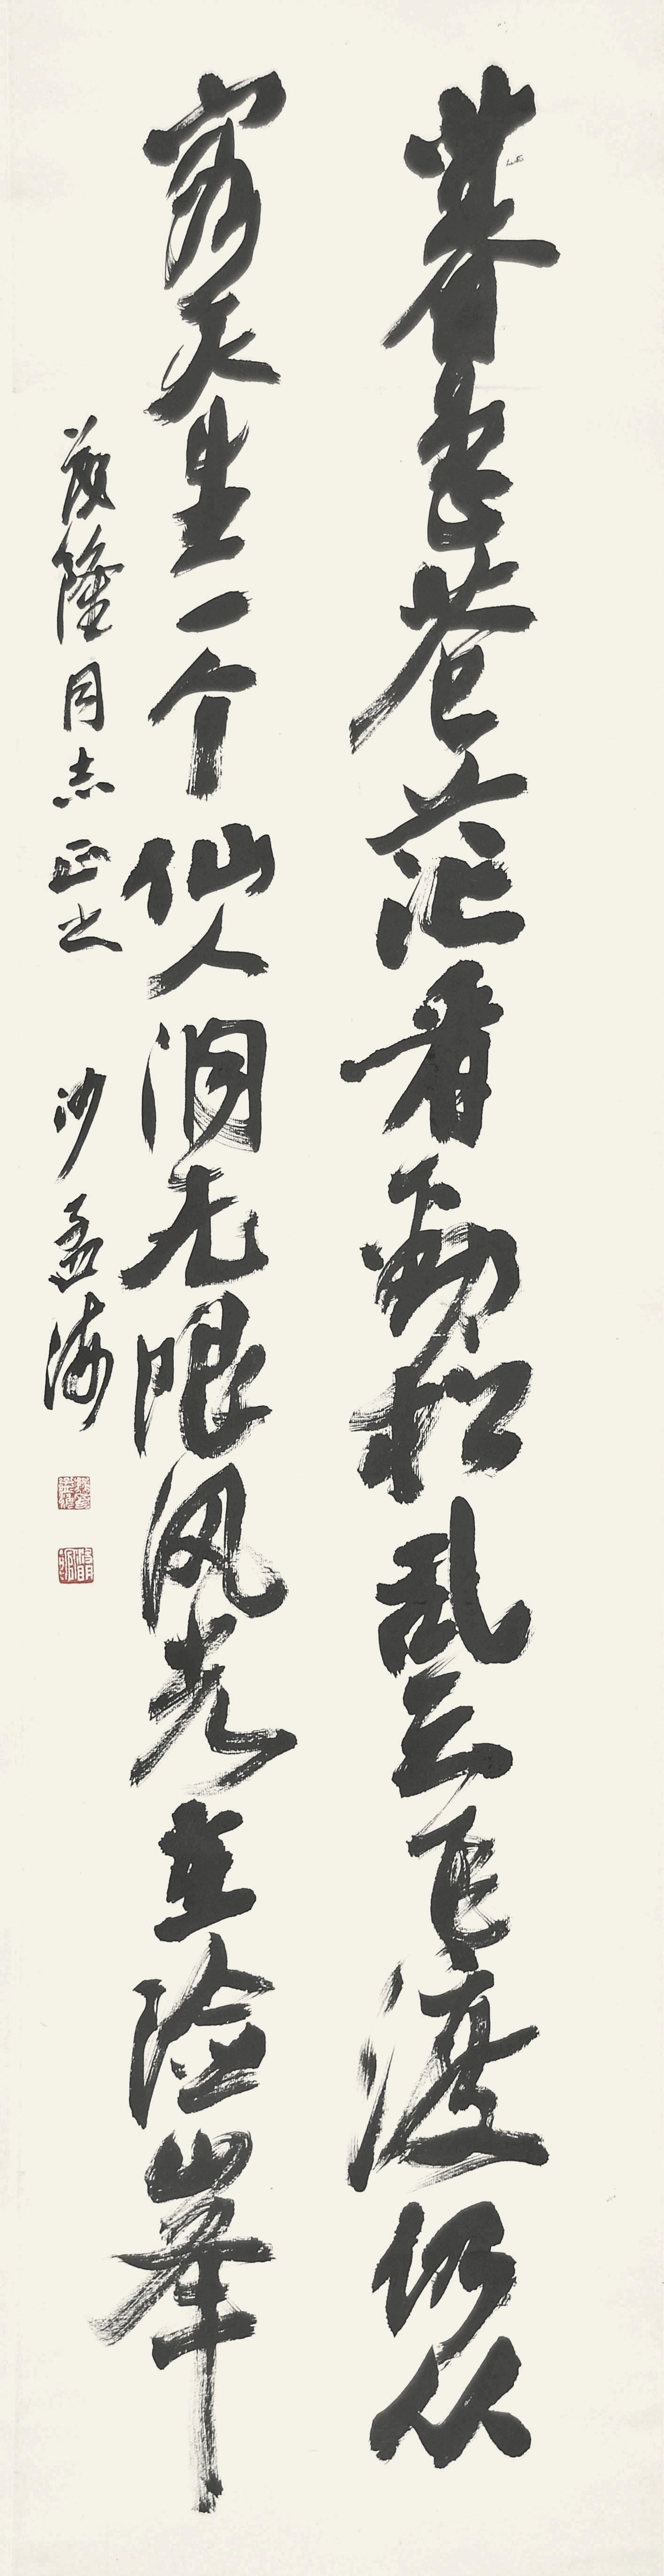 暮色苍茫看劲松乱云飞渡仍从
容天生一个仙人洞无限风光在险峰
茂隆同志正之 沙孟海